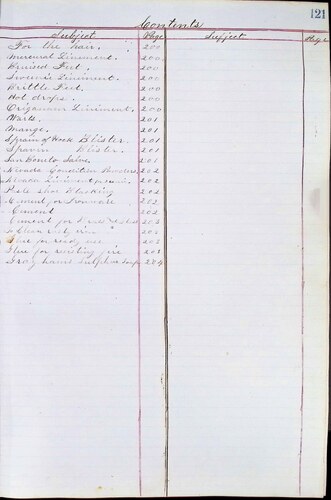 121
Contents
Subject Page Subject Page
For the hair. 200
Mineral Liniment. 200
Bruised Feet. 200
Liniment. 200
Brittle Feet. 200
Hot drops. 200
Origanum Liniment. 200
Warts. 201
Mange. 201
Sprain of Hock Blister. 201
Spavin Blister. 201
San Benito Salve 202
Nevada Condition Powders 202
Nevada Liniment 202
Paste Shoe Blacking 202
Cement for Ironware 202
Cement 202
Cement for 202
To Clean 202
Glue for ready use 203
Glue for resisting fire 203
Grayhams Sulphur Soap 204